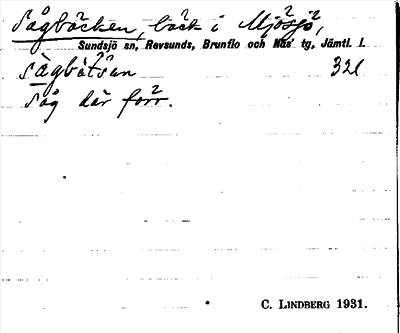 Sågbäcken, bäck i Mjösjö,
Sundsjö sn, Revsunds, Brunflo och Näs tg, Jämtl. l.
sàgbètsan 321
Såg där förr.
C. LINDBERG 1931.